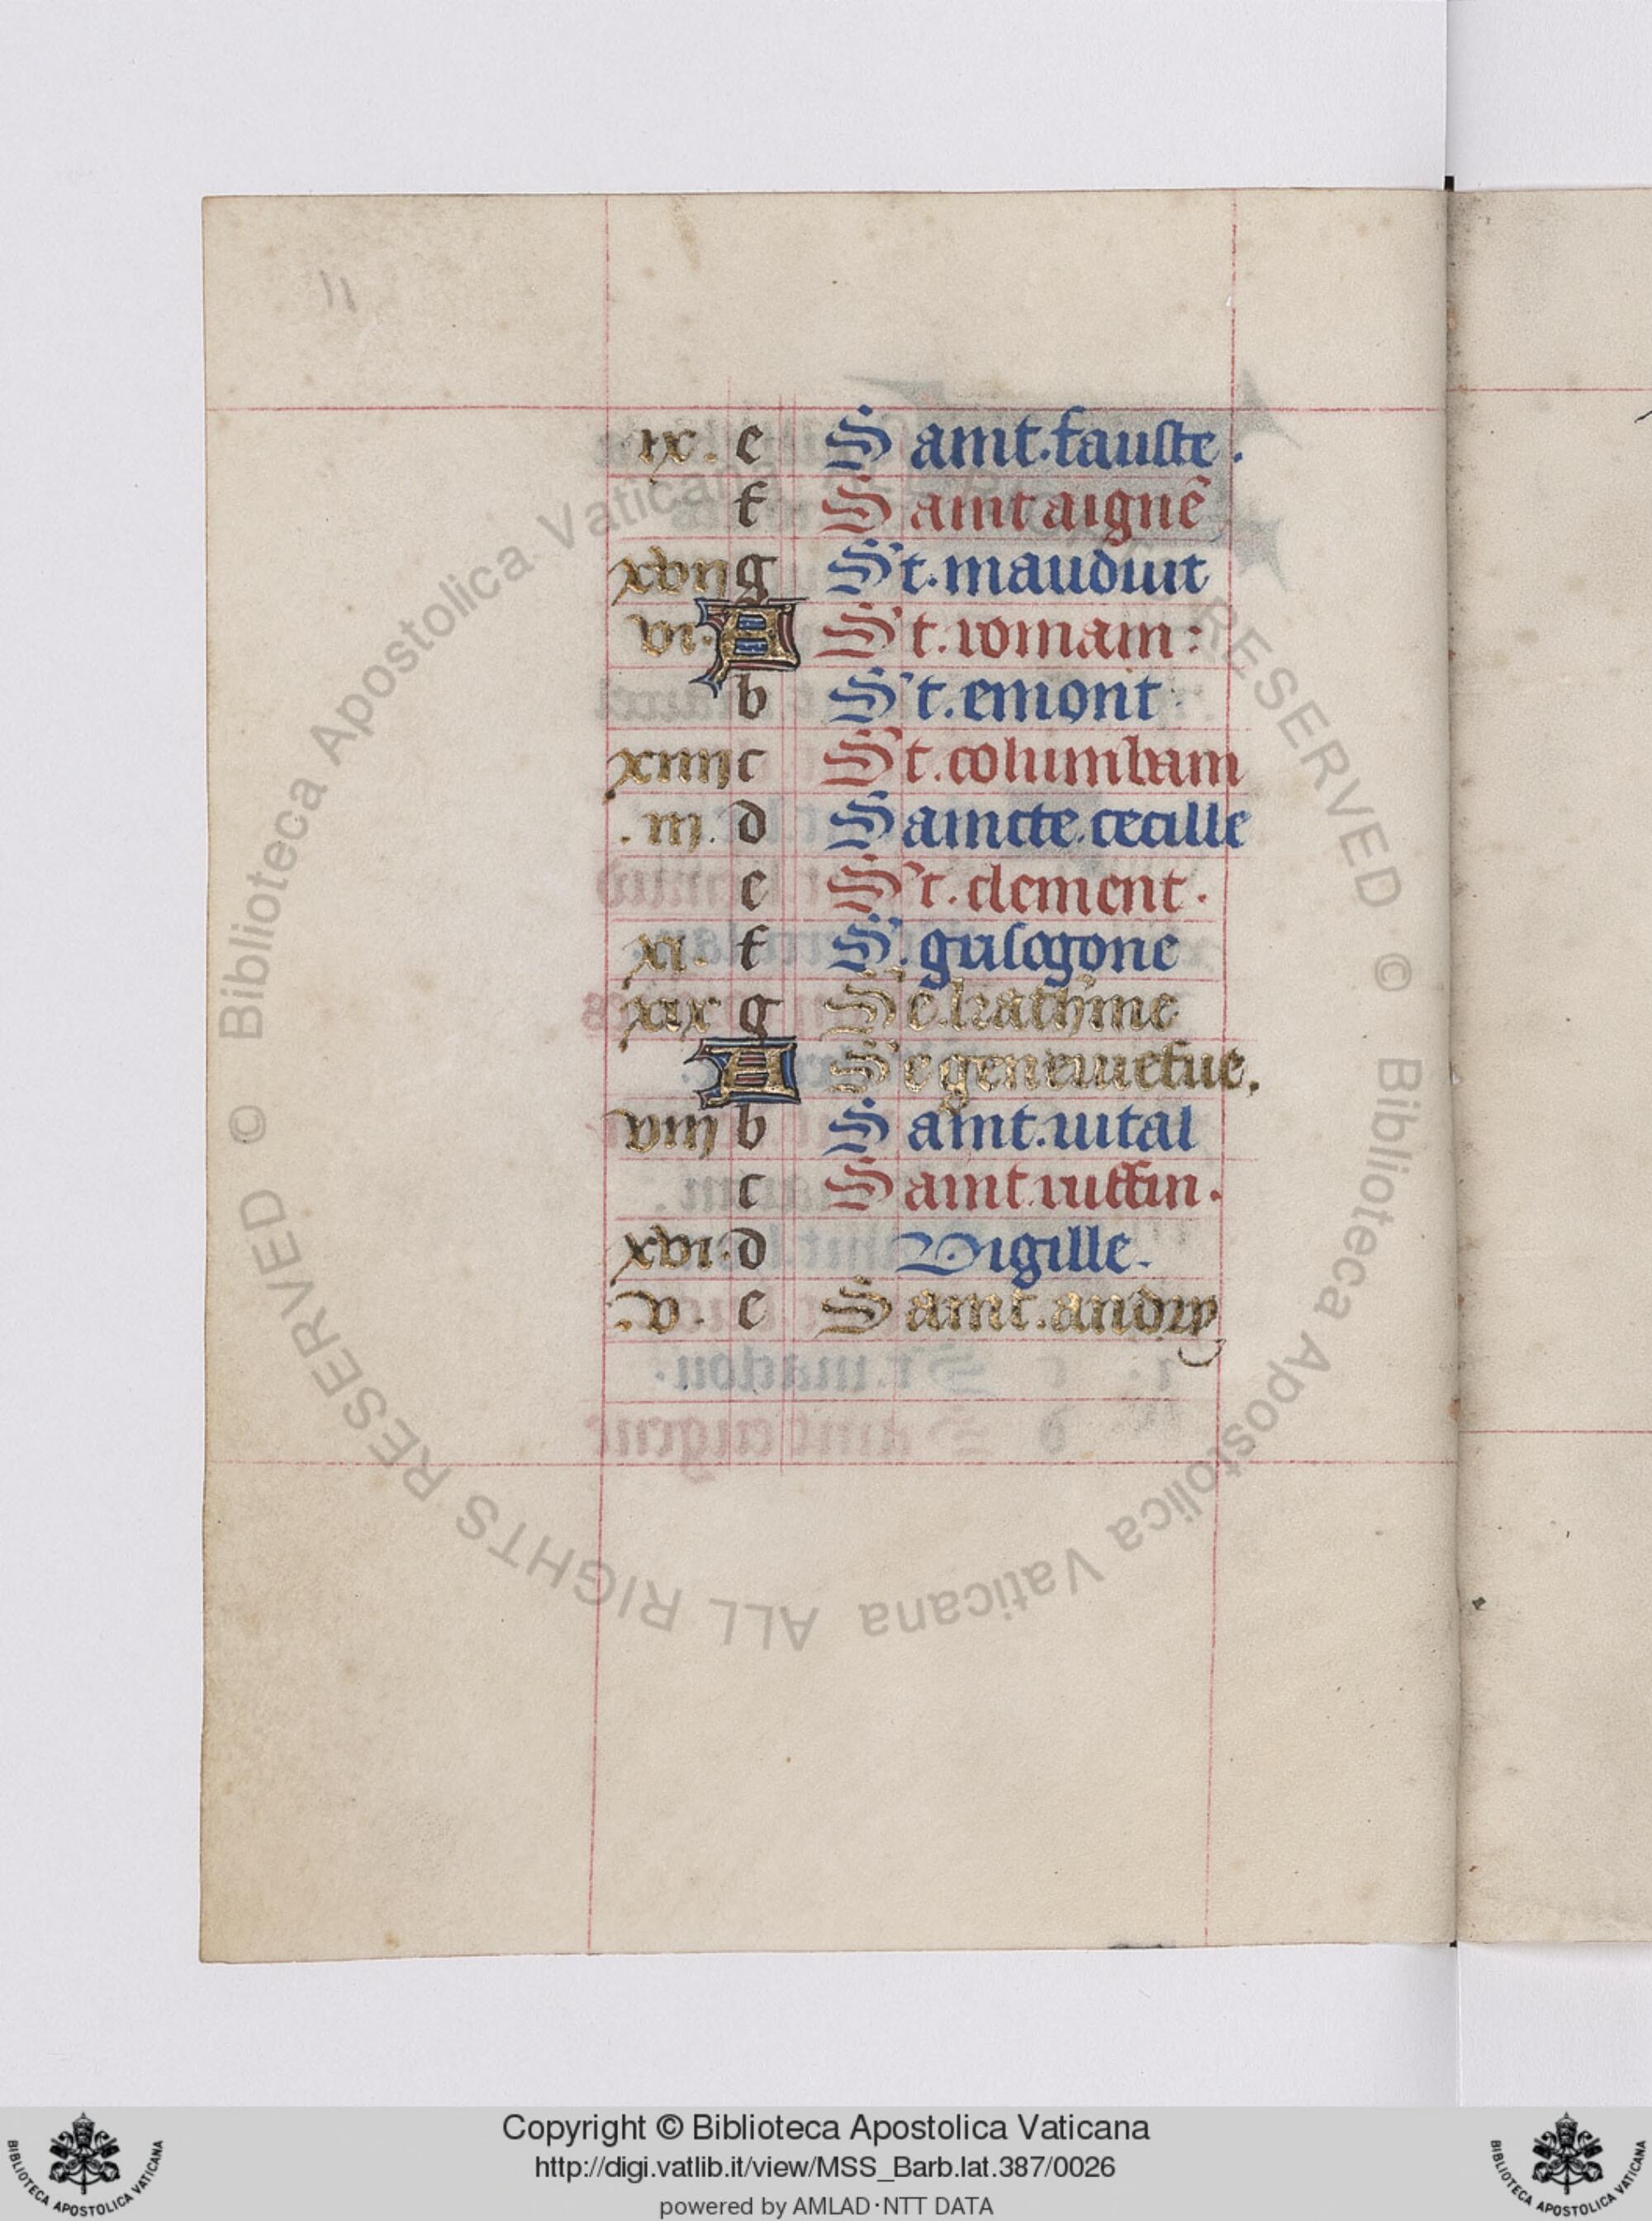 11
ix. e Saint.fauste.
f Saint aignē
xvii g St.mauduit
vi. A St.romain:
b St.emont
xiiii c St.columbain
.iii. d Saincte.cecille
e St.clement.
xi. f S.grisogone
xix g Se.kath'ine
A Se geneuiefue.
viii b Saint.uital
c Saint.ruffin.
xvi. d Vigille.
.v. e Saint.andry
© Biblioteca Apostolica Vaticana ALL RIGHTS RESERVED © Biblioteca Apostolica Vaticana ALL RIGHTS RESERVED
Copyright © Biblioteca Apostolica Vaticana
http://digi.vatlib.it/view/MSS_Barb.lat.387/0026
powered by AMLAD·NTT DATA
BIBLIOTECA APOSTOLICA VATICANA
BIBLIOTECA APOSTOLICA VATICANA